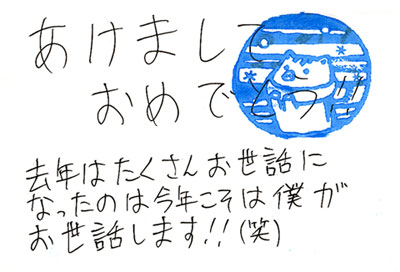 あけまして
おめでとう!!
去年はたくさんお世話に
なったのは今年こそは僕が
お世話します!!(笑)